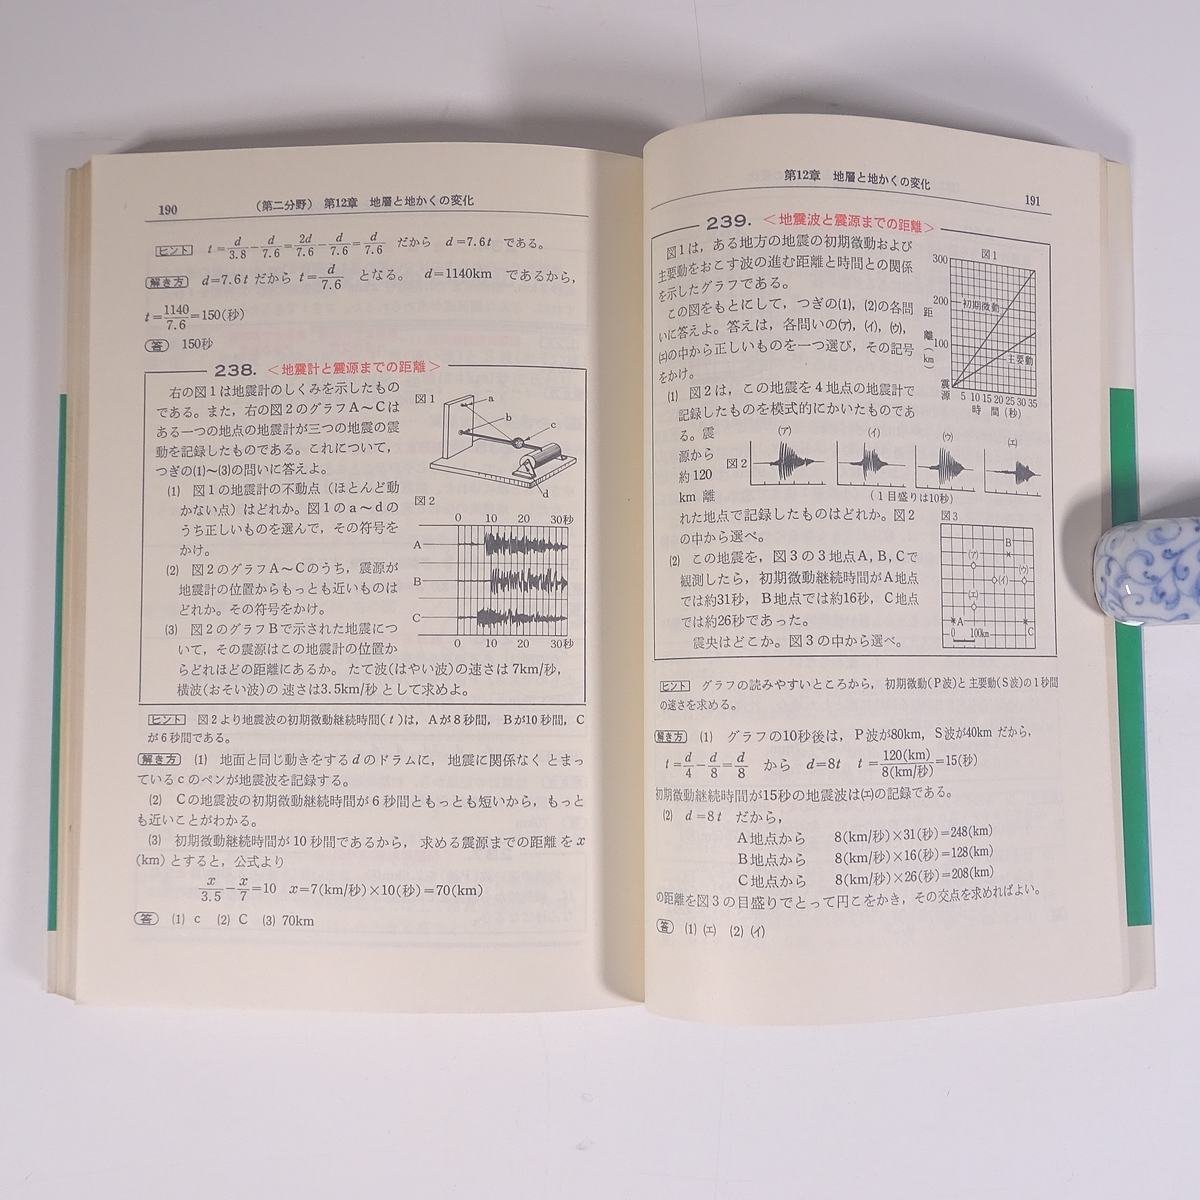 190　（第二分野）　第12章　地層と地かくの変化
ヒント　t=d/3.8−d/7.6=2d/7.6−d/7.6=d/7.6　だから　d=7.6t　である。
解き方　d=7.6t だから t=d/7.6　となる。　d=1140km　であるから，
t=1140/7.6=150(秒)
答　150秒
238.　＜地震計と震源までの距離＞
右の図1は地震計のしくみを示したもの
である。また，右の図2のグラフA〜Cは
ある一つの地点の地震計が三つの地震の震
動を記録したものである。これについて，
つぎの(1)〜(3)の問いに答えよ。
(1)　図1の地震計の不動点（ほとんど動
かない点）はどれか。図1のa〜dの
うち正しいものを選んで，その符号を
かけ。
(2)　図2のグラフA〜Cのうち，震源が
地震計の位置からもっとも近いものは
どれか。その符号をかけ。
(3)　図2のグラフBで示された地震につ
いて，その震源はこの地震計の位置か
らどれほどの距離にあるか。たて波(はやい波)の速さは7km/秒，
横波(おそい波)の速さは3.5km/秒として求めよ。
図1
a
b
c
d
図2
0　10　20　30秒
A
B
C
0　10　20　30秒
ヒント　図2より地震波の初期微動継続時間(t)は，Aが8秒間，Bが10秒間，C
が6秒間である。
解き方　(1)　地面と同じ動きをするdのドラムに，地震に関係なくとまっ
ているcのペンが地震波を記録する。
(2)　Cの地震波の初期微動継続時間が6秒間ともっとも短いから，もっと
も近いことがわかる。
(3)　初期微動継続時間が10秒間であるから，求める震源までの距離をx
(km)とすると，公式より
x/3.5−x/7=10　x=7(km/秒)×10(秒)=70(km)
答　(1) c　(2) C　(3) 70km
第12章　地層と地かくの変化　191
239.　＜地震波と震源までの距離＞
図1は，ある地方の地震の初期微動および
主要動をおこす波の進む距離と時間との関係
を示したグラフである。
この図をもとにして，つぎの(1)，(2)の各問
いに答えよ。答えは，各問いの(ア)，(イ)，(ウ)，
(エ)の中から正しいものを一つ選び，その記号
をかけ。
図1
300
200
100
距離(km)
初期微動
主要動
震源
5 10 15 20 25 30 35
時間(秒)
(1)　図2は，この地震を4地点の地震計で
記録したものを模式的にかいたものであ
る。震
源から
約120
km離
れた地点で記録したものはどれか。図2
の中から選べ。
図2
(ア)　(イ)　(ウ)　(エ)
(1目盛りは10秒)
(2)　この地震を，図3の3地点A，B，Cで
観測したら，初期微動継続時間がA地点
では約31秒，B地点では約16秒，C地点
では約26秒であった。
震央はどこか。図3の中から選べ。
図3
B
(ア)
(ウ)
(イ)
(エ)
A
C
0　100km
ヒント　グラフの読みやすいところから，初期微動(P波)と主要動(S波)の1秒間
の速さを求める。
解き方　(1)　グラフの10秒後は，P波が80km，S波が40kmだから，
t=d/4−d/8=d/8　から　d=8t　t=120(km)/8(km/秒)=15(秒)
初期微動継続時間が15秒の地震波は(エ)の記録である。
(2)　d=8t　だから，
A地点から　8(km/秒)×31(秒)=248(km)
B地点から　8(km/秒)×16(秒)=128(km)
C地点から　8(km/秒)×26(秒)=208(km)
の距離を図3の目盛りでとって円こをかき，その交点を求めればよい。
答　(1) (エ)　(2) (イ)